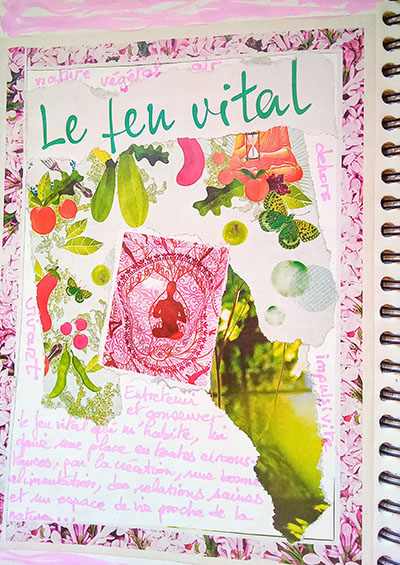 nature végétal air
Le feu vital
dehors
vivant
impulsivité
Entretenir
et conserver
le feu vital qui m'habite, lui
garder une place en toutes circons-
tances, par la création, une bonne
alimentation, des relations saines
et un espace de vie proche de la
nature...